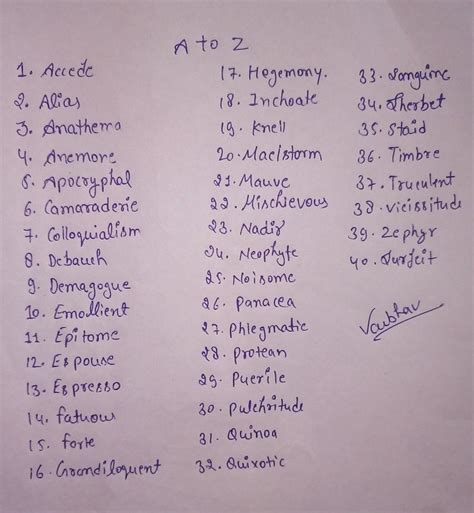 A to Z
1. Accede
2. Alias
3. Anathema
4. Anemone
5. Apocryphal
6. Camaraderie
7. Colloquialism
8. Debauch
9. Demagogue
10. Emollient
11. Epitome
12. Espouse
13. Espresso
14. fatuous
15. forte
16. Grandiloquent
17. Hegemony.
18. Inchoate
19. Knell
20. Maelstorm
21. Mauve
22. Mischievous
23. Nadir
24. Neophyte
25. Noisome
26. Panacea
27. Phlegmatic
28. Protean
29. Puerile
30. Pulchritude
31. Quinoa
32. Quixotic
33. Sanguine
34. Sherbet
35. Staid
36. Timbre
37. Truculent
38. Vicissitude
39. Zephyr
40. Surfeit
Vaubhav